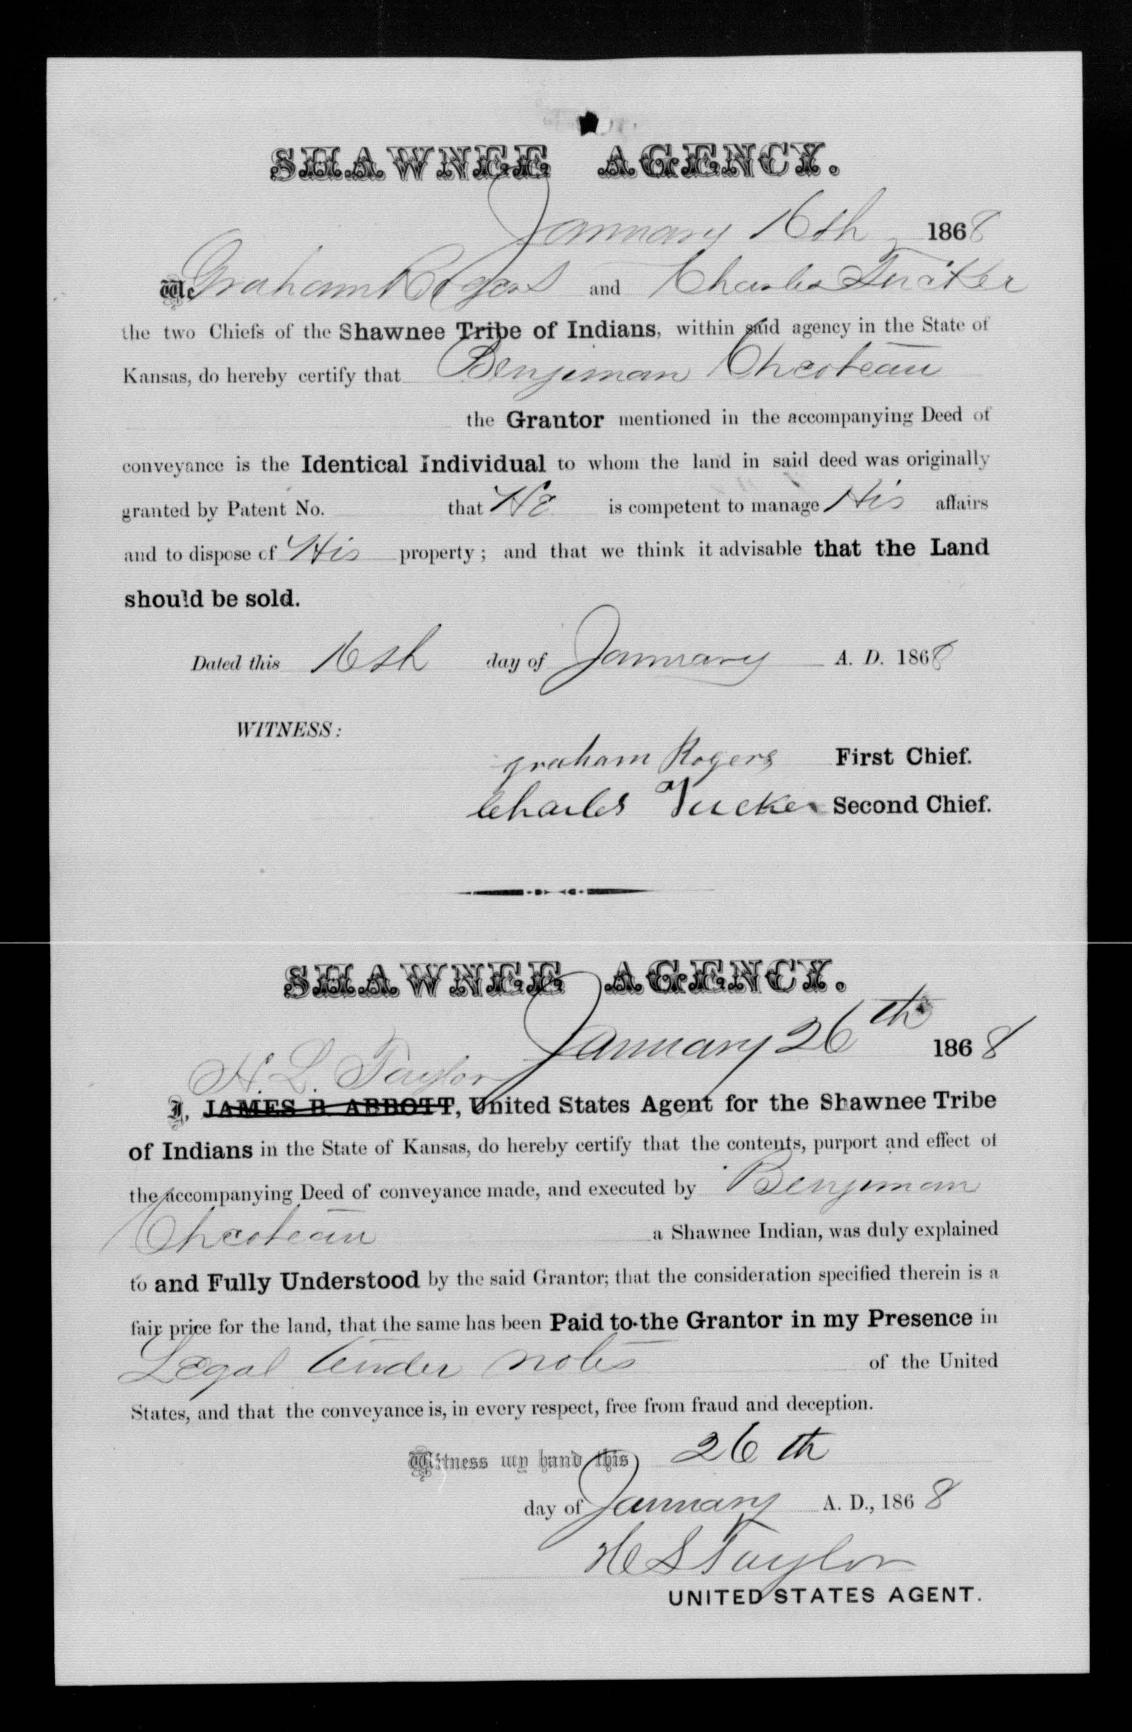 SHAWNEE AGENCY.
January 16th 1868
We Graham Rogers and Charles Tucker
the two Chiefs of the Shawnee Tribe of Indians, within said agency in the State of
Kansas, do hereby certify that Benjiman Chcoteau
the Grantor mentioned in the accompanying Deed of
conveyance is the Identical Individual to whom the land in said deed was originally
granted by Patent No. that He is competent to manage His affairs
and to dispose of His property; and that we think it advisable that the Land
should be sold.
Dated this 16th day of January A. D. 1868
WITNESS:
graham Rogers First Chief.
Charles Tucker Second Chief.
SHAWNEE AGENCY.
January 26th 1868
H. L. Taylor
I, JAMES B. ABBOTT, United States Agent for the Shawnee Tribe
of Indians in the State of Kansas, do hereby certify that the contents, purport and effect of
the accompanying Deed of conveyance made, and executed by Benjiman
Chcoteau a Shawnee Indian, was duly explained
to and Fully Understood by the said Grantor; that the consideration specified therein is a
fair price for the land, that the same has been Paid to the Grantor in my Presence in
Legal tender notes of the United
States, and that the conveyance is, in every respect, free from fraud and deception.
Witness my hand this 26th
day of January A. D., 1868
H L Taylor
UNITED STATES AGENT.